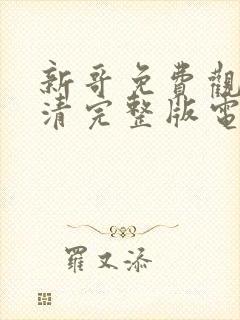 新哥免費觀
清完整版電
羅又添